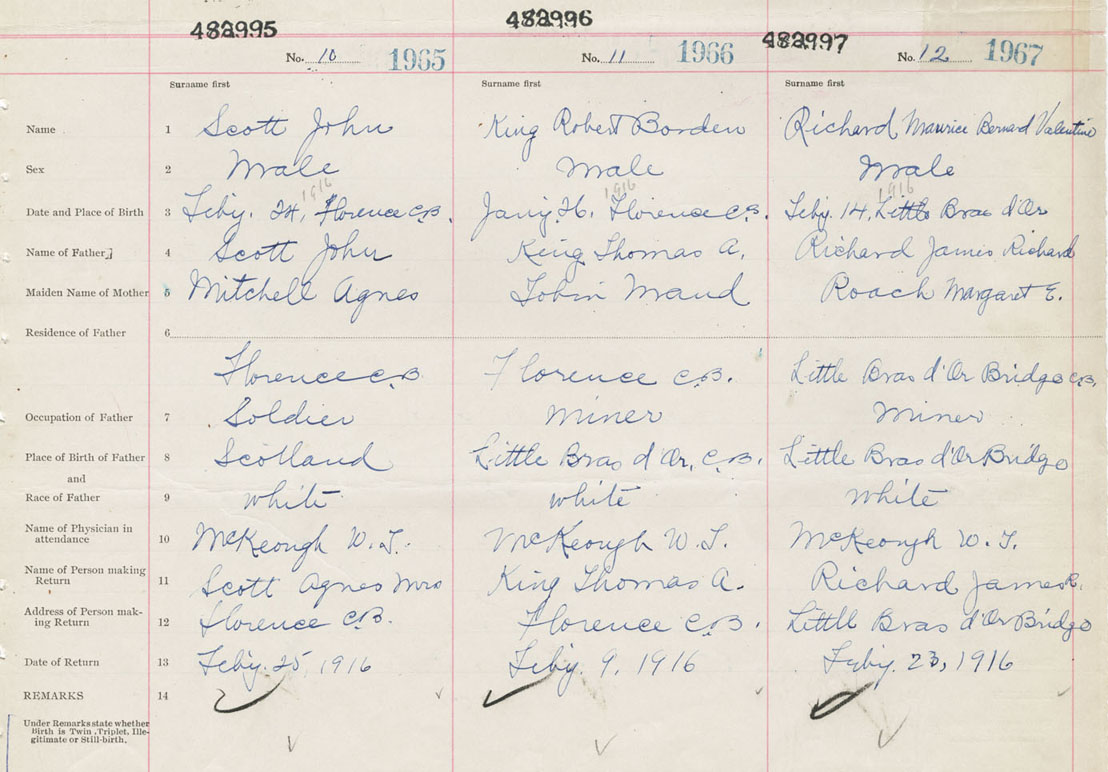 482995 482996 482997
No. 10 1965 No. 11 1966 No. 12 1967
Surname first Surname first Surname first
Name 1 Scott John King Robert Borden Richard Maurice Bernard Valentine
Sex 2 Male Male Male
1916 1916 1916
Date and Place of Birth 3 Feby. 24, Florence C.B. Jany. 26. Florence C.B. Feby. 14, Little Bras d'Or
Name of Father 4 Scott John King Thomas A. Richard James Richard
Maiden Name of Mother 5 Mitchell Agnes Tobin Maud Roach Margaret E.
Residence of Father 6
Florence C.B. Florence C.B. Little Bras d'Or Bridge C.B.
Occupation of Father 7 Soldier Miner Miner
Place of Birth of Father 8 Scotland Little Bras d'Or, C.B. Little Bras d'Or Bridge
and
Race of Father 9 White White White
Name of Physician in
attendance 10 McKeough W.J. McKeough W.J. McKeough W.J.
Name of Person making
Return 11 Scott Agnes Mrs King Thomas A. Richard James R.
Address of Person mak-
ing Return 12 Florence C.B. Florence C.B. Little Bras d'Or Bridge
Date of Return 13 Feby. 25, 1916 Feby. 9, 1916 Feby. 23, 1916
REMARKS 14
Under Remarks state whether
Birth is Twin, Triplet, Ille-
gitimate or Still-birth.